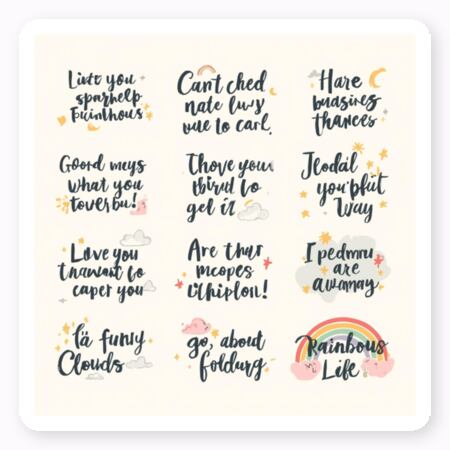 Liste you
sparhelp
Fuinthous
Can't ched
nate luvy
vue to carl.
Hare
buasines
thances
Goord meys
what you
toverbu!
Thove your
tbird to
gel it
Jeodal
you'phit
Way
Love you
thawant to
caper you
Are thur
mcopes
I pedmru
are
avvamay
funly
Clouds
go, about
foldurg
Rainbous
Life